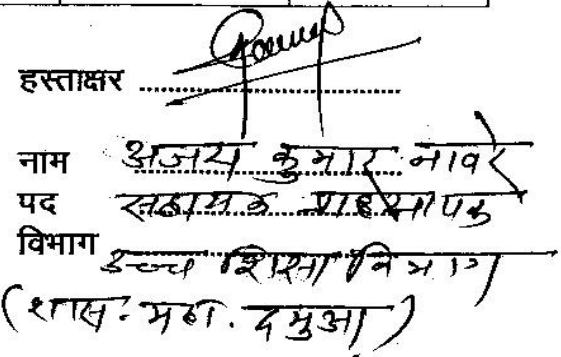 हस्ताक्षर
नाम अजय कुमार नावरे
पद सहायक प्राध्यापक
विभाग उच्च शिक्षा विभाग
(शास. महा. दमुआ)